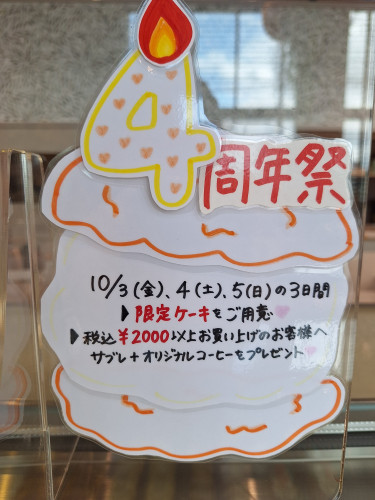 4
周年祭
10/3(金)、4(土)、5(日)の3日間
▶限定ケーキをご用意
▶税込¥2000以上お買い上げのお客様へ
サブレ+オリジナルコーヒーをプレゼント